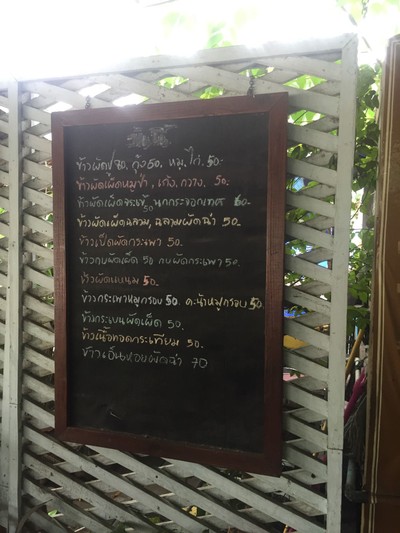 ข้าวผัดปู 70. กุ้ง 60. หมู, ไก่. 50.-
ข้าวผัดเผ็ดหมูป่า, เก้ง, กวาง. 50.-
ข้าวผัดเผ็ดจระเข้ 50 นกกระจอกเทศ 60-
ข้าวผัดเผ็ดฉลาม, ฉลามผัดฉ่า 50.-
ข้าวเป็ดผัดกระเพา 50.
ข้าวกบผัดเผ็ด 50 กบผัดกระเพา 50.
ข้าวผัดแหนม 50.
ข้าวกระเพาหมูกรอบ 50. คะน้าหมูกรอบ 50.
ข้าวกระเบนผัดเผ็ด 50.
ข้าวเนื้อทอดกระเทียม 50.
ข้าวเอ็นหอยผัดฉ่า 70